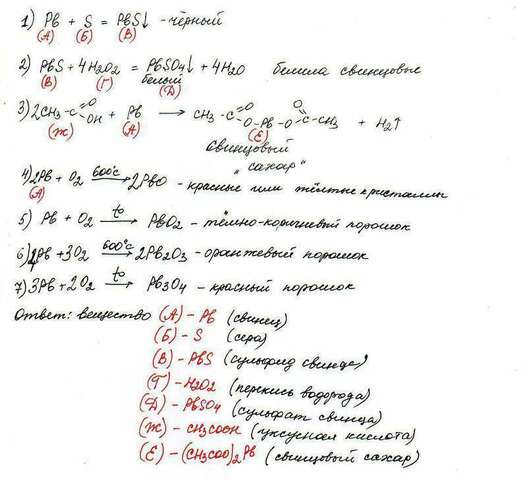 1) Pb + S = PbS↓ - чёрный
(А) (Б) (В)
2) PbS + 4H2O2 = PbSO4↓ + 4H2O белила свинцовые
(В) (Г) белый (Д)
3) 2CH3-C O OH + Pb → CH3-C O O-Pb-O O C-CH3 + H2↑
(Ж) (А) (Е)
свинцовый
"сахар"
4) 2Pb + O2 600°C 2PbO - красные или жёлтые кристаллы
(А)
5) Pb + O2 t° → PbO2 - тёмно-коричневый порошок
6) 4Pb + 3O2 600°C → 2Pb2O3 - оранжевый порошок
7) 3Pb + 2O2 t° → Pb3O4 - красный порошок
Ответ: вещество (А) - Pb (свинец)
(Б) - S (сера)
(В) - PbS (сульфид свинца)
(Г) - H2O2 (перекись водорода)
(Д) - PbSO4 (сульфат свинца)
(Ж) - CH3COOH (уксусная кислота)
(Е) - (CH3COO)2Pb (свинцовый сахар)